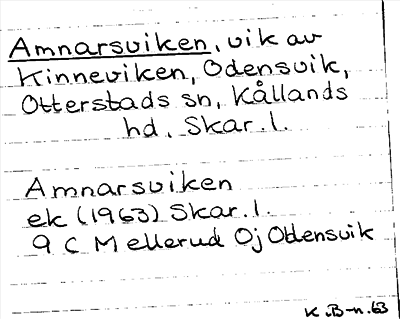 Amnarsviken, vik av
Kinneviken, Odensvik,
Otterstads sn, Kållands
hd, Skar. l.
Amnarsviken
ek (1963) Skar. l.
9 C Mellerud Öj Odensvik
K.B-n. 63